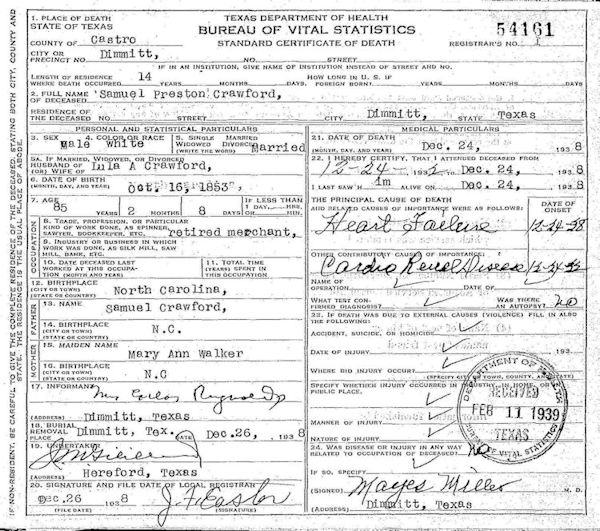 1. PLACE OF DEATH
STATE OF TEXAS
TEXAS DEPARTMENT OF HEALTH
BUREAU OF VITAL STATISTICS
STANDARD CERTIFICATE OF DEATH
54161
REGISTRAR'S NO. 1
COUNTY OF Castro
CITY OR
PRECINCT NO. Dimmitt, NO. STREET
IF IN AN INSTITUTION, GIVE NAME OF INSTITUTION INSTEAD OF STREET AND NO.
LENGTH OF RESIDENCE
WHERE DEATH OCCURRED 14 YEARS MONTHS DAYS.
HOW LONG IN U. S. IF
FOREIGN BORN? YEARS MONTHS DAYS
2. FULL NAME
OF DECEASED Samuel Preston Crawford,
RESIDENCE OF
THE DECEASED NO. STREET CITY Dimmitt, STATE Texas
PERSONAL AND STATISTICAL PARTICULARS
3. SEX 4. COLOR OR RACE 5. SINGLE MARRIED
WIDOWED DIVORCED
(WRITE THE WORD)
Male White Married
5A. IF MARRIED, WIDOWED, OR DIVORCED
HUSBAND OF
(OR) WIFE OF Lula A Crawford,
6. DATE OF BIRTH
(MONTH, DAY, AND YEAR) Oct. 16, 1853,
7. AGE
85 YEARS 2 MONTHS 8 DAYS
IF LESS THAN
1 DAY, HRS.
MIN.
OCCUPATION
8. TRADE, PROFESSION, OR PARTICULAR
KIND OF WORK DONE, AS SPINNER,
SAWYER, BOOKKEEPER, ETC. retired merchant,
9. INDUSTRY OR BUSINESS IN WHICH
WORK WAS DONE, AS SILK MILL, SAW
MILL, BANK, ETC.
10. DATE DECEASED LAST
WORKED AT THIS OCCUPATION
(MONTH AND YEAR)
11. TOTAL TIME
(YEARS) SPENT IN
THIS OCCUPATION
12. BIRTHPLACE
(STATE OR COUNTRY) North Carolina,
FATHER
13. NAME
Samuel Crawford,
14. BIRTHPLACE
(STATE OR COUNTRY) N.C.
MOTHER
15. MAIDEN NAME
Mary Ann Walker
16. BIRTHPLACE
(STATE OR COUNTRY) N.C
17. INFORMANT
(ADDRESS) Dimmitt, Texas
18. BURIAL
REMOVAL
PLACE Dimmitt, Tex. DATE Dec.26, 193 8
19. UNDERTAKER
(ADDRESS) Hereford, Texas
20. SIGNATURE AND FILE DATE OF LOCAL REGISTRAR
Dec.26 193 8
(FILE DATE) (SIGNATURE)
MEDICAL PARTICULARS
21. DATE OF DEATH
(MONTH, DAY, AND YEAR) Dec. 24, 193 8
22. I HEREBY CERTIFY, THAT I ATTENDED DECEASED FROM
12-24- TO Dec. 24, 193 8
I LAST SAW him ALIVE ON Dec. 24, 193 8
THE PRINCIPAL CAUSE OF DEATH
AND RELATED CAUSES OF IMPORTANCE WERE AS FOLLOWS:
DATE OF
ONSET
Heart Failure 12-24-38
OTHER CONTRIBUTORY CAUSES OF IMPORTANCE
Cardio Renal Disease
NAME OF
OPERATION DATE OF
WHAT TEST CONFIRMED
DIAGNOSIS? WAS THERE
AN AUTOPSY? no
23. IF DEATH WAS DUE TO EXTERNAL CAUSES (VIOLENCE) FILL IN ALSO
THE FOLLOWING:
ACCIDENT, SUICIDE, OR HOMICIDE?
DATE OF INJURY 193
WHERE DID INJURY OCCUR?
(SPECIFY CITY OR TOWN, COUNTY, AND STATE)
SPECIFY WHETHER INJURY OCCURRED IN INDUSTRY, IN HOME, OR IN
PUBLIC PLACE.
MANNER OF INJURY
NATURE OF INJURY
24. WAS DISEASE OR INJURY IN ANY WAY RELATED TO OCCUPATION OF
DECEASED? no
IF SO, SPECIFY
(SIGNED) Mayes Miller M. D.
(ADDRESS) Dimmitt, Texas
DEPARTMENT OF HEALTH
RECEIVED
FEB 11 1939
TEXAS
BUREAU OF VITAL STATISTICS